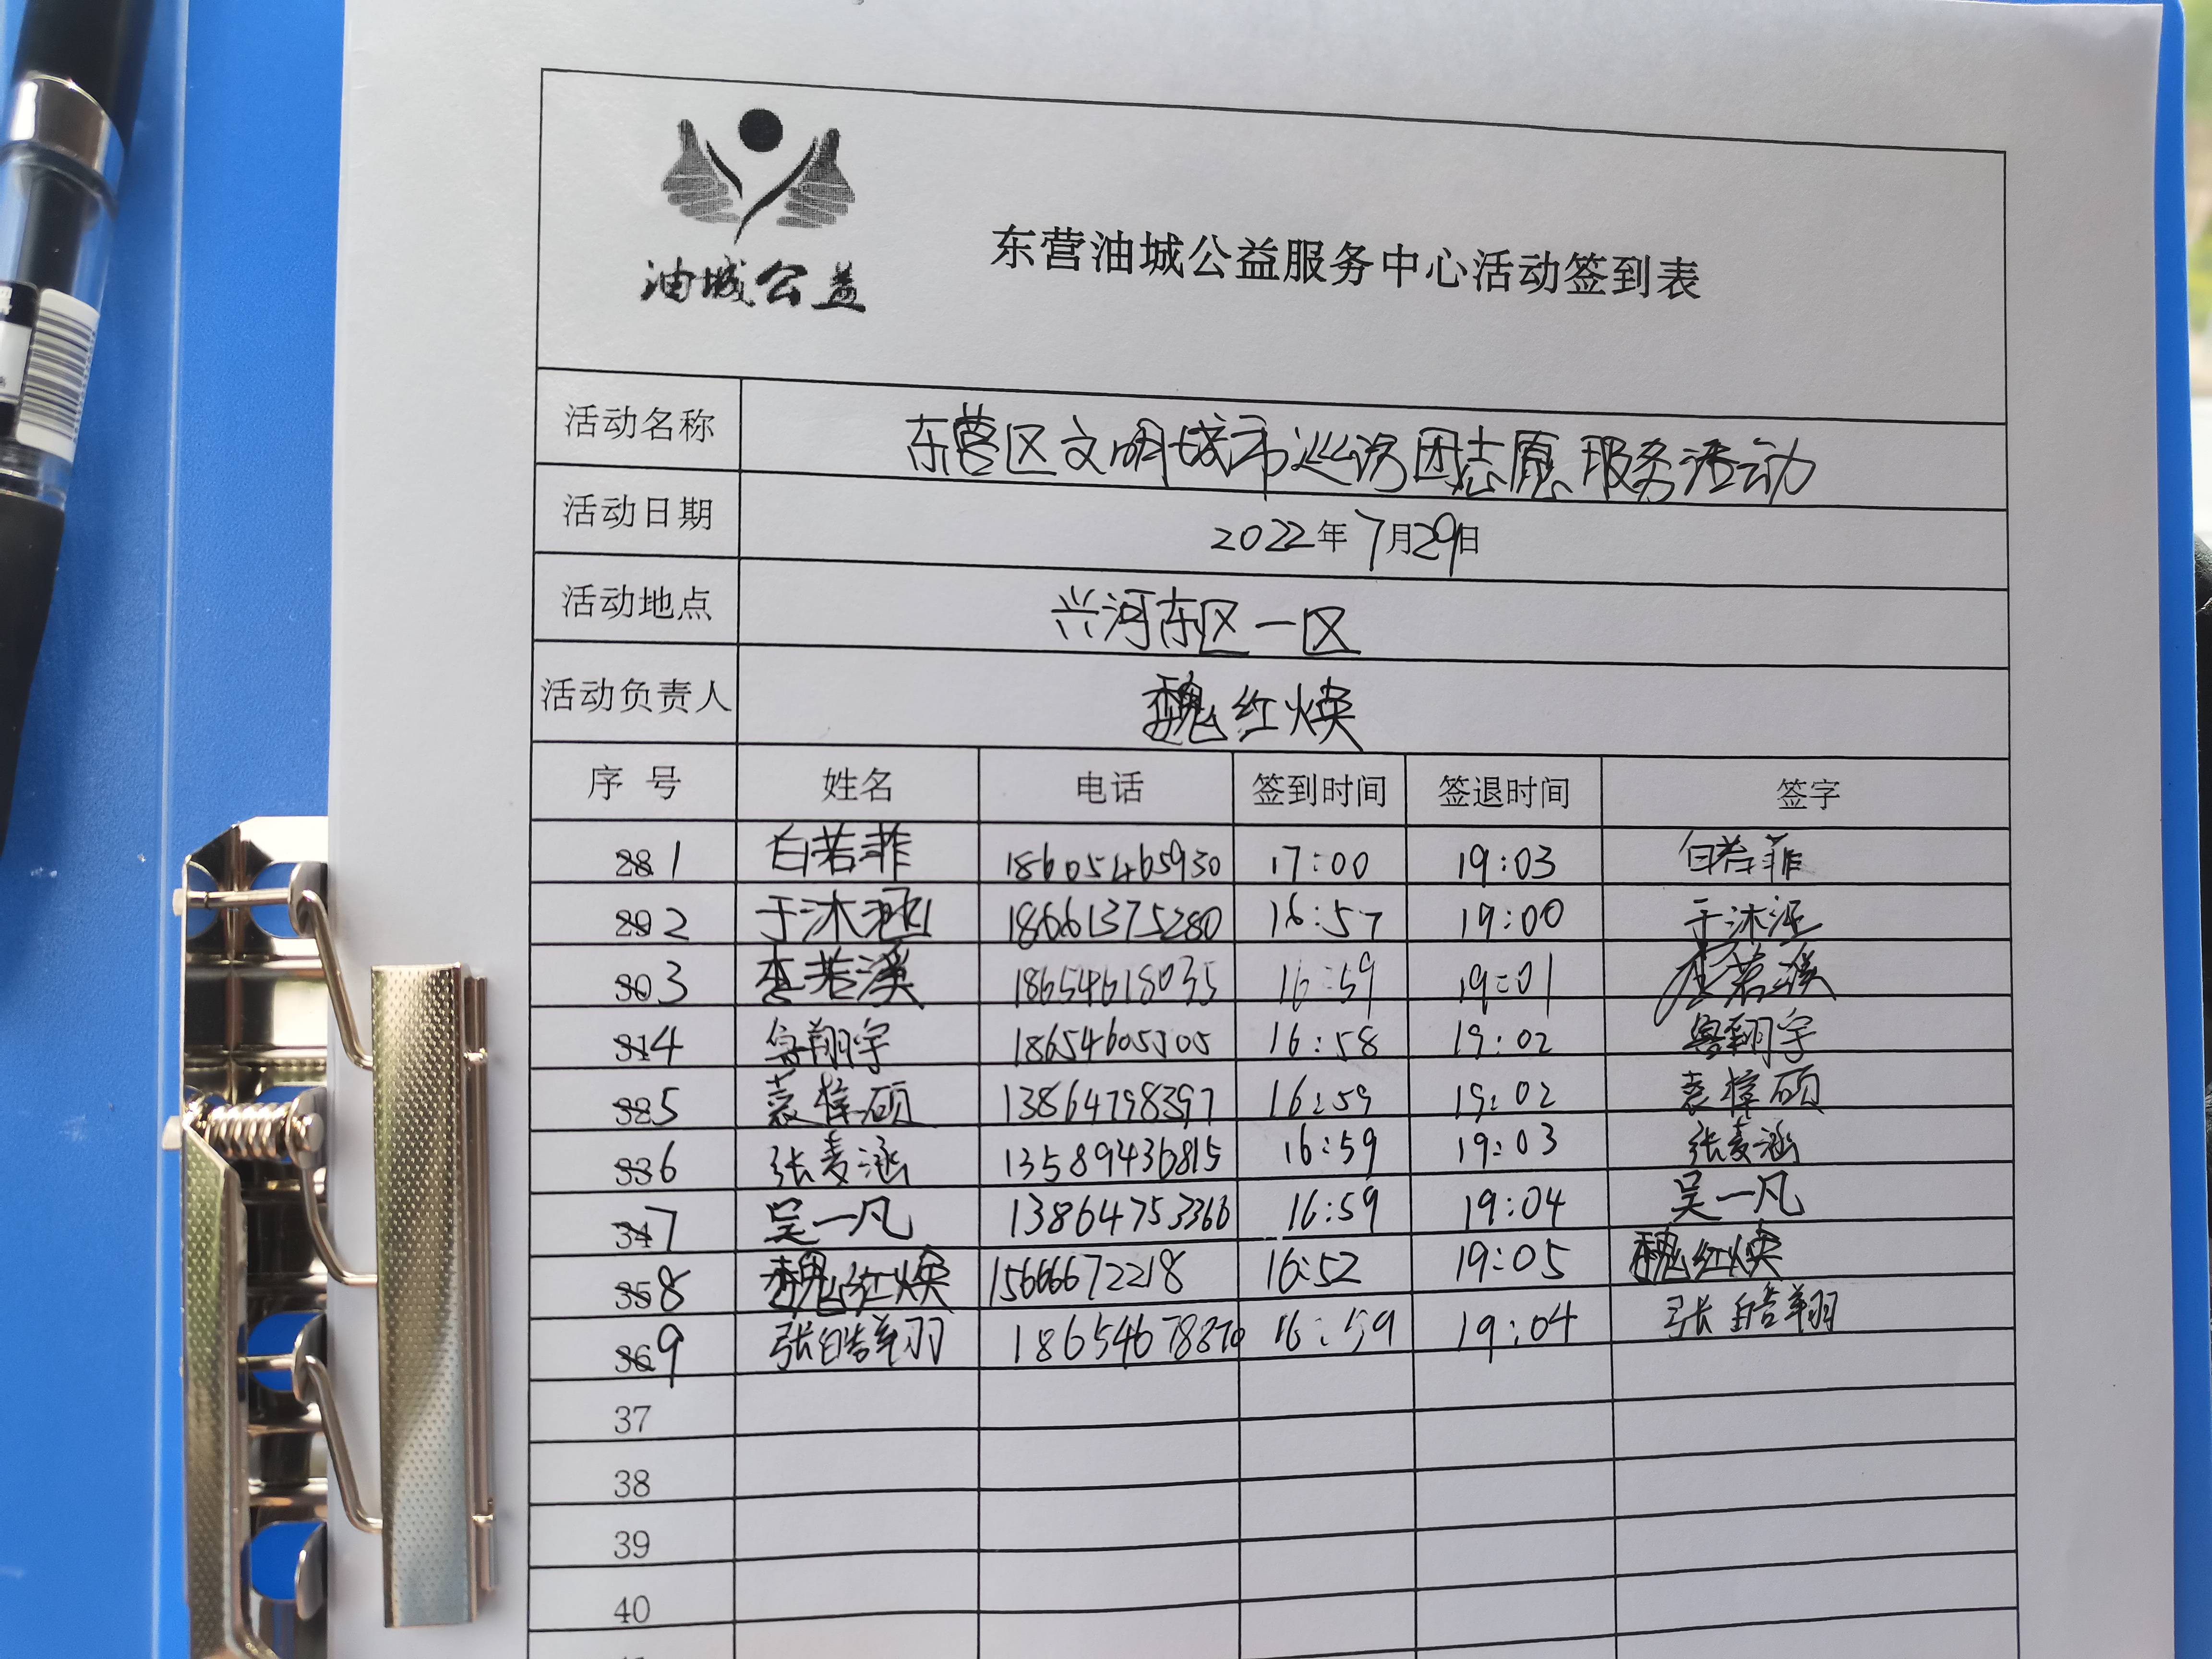 油城公益
东营油城公益服务中心活动签到表
活动名称 东营区文明城市巡访团志愿服务活动
活动日期 2022年7月29日
活动地点 兴河东区一区
活动负责人 魏红焕
序号 姓名 电话 签到时间 签退时间 签字
1 白若菲 18605465930 17:00 19:03 白若菲
2 于沐涵 18661375280 16:57 19:00 于沐涵
3 李若溪 18654618035 16:59 19:01 李若溪
4 翔宇 16:58 19:02 翔宇
5 袁梓硕 13864798397 16:59 19:02 袁梓硕
6 张麦涵 13589436815 16:59 19:03 张麦涵
7 吴一凡 13864753366 16:59 19:04 吴一凡
8 魏红焕 15666672218 16:52 19:05 魏红焕
9 张皓翔 16:59 19:04 张皓翔
37
38
39
40